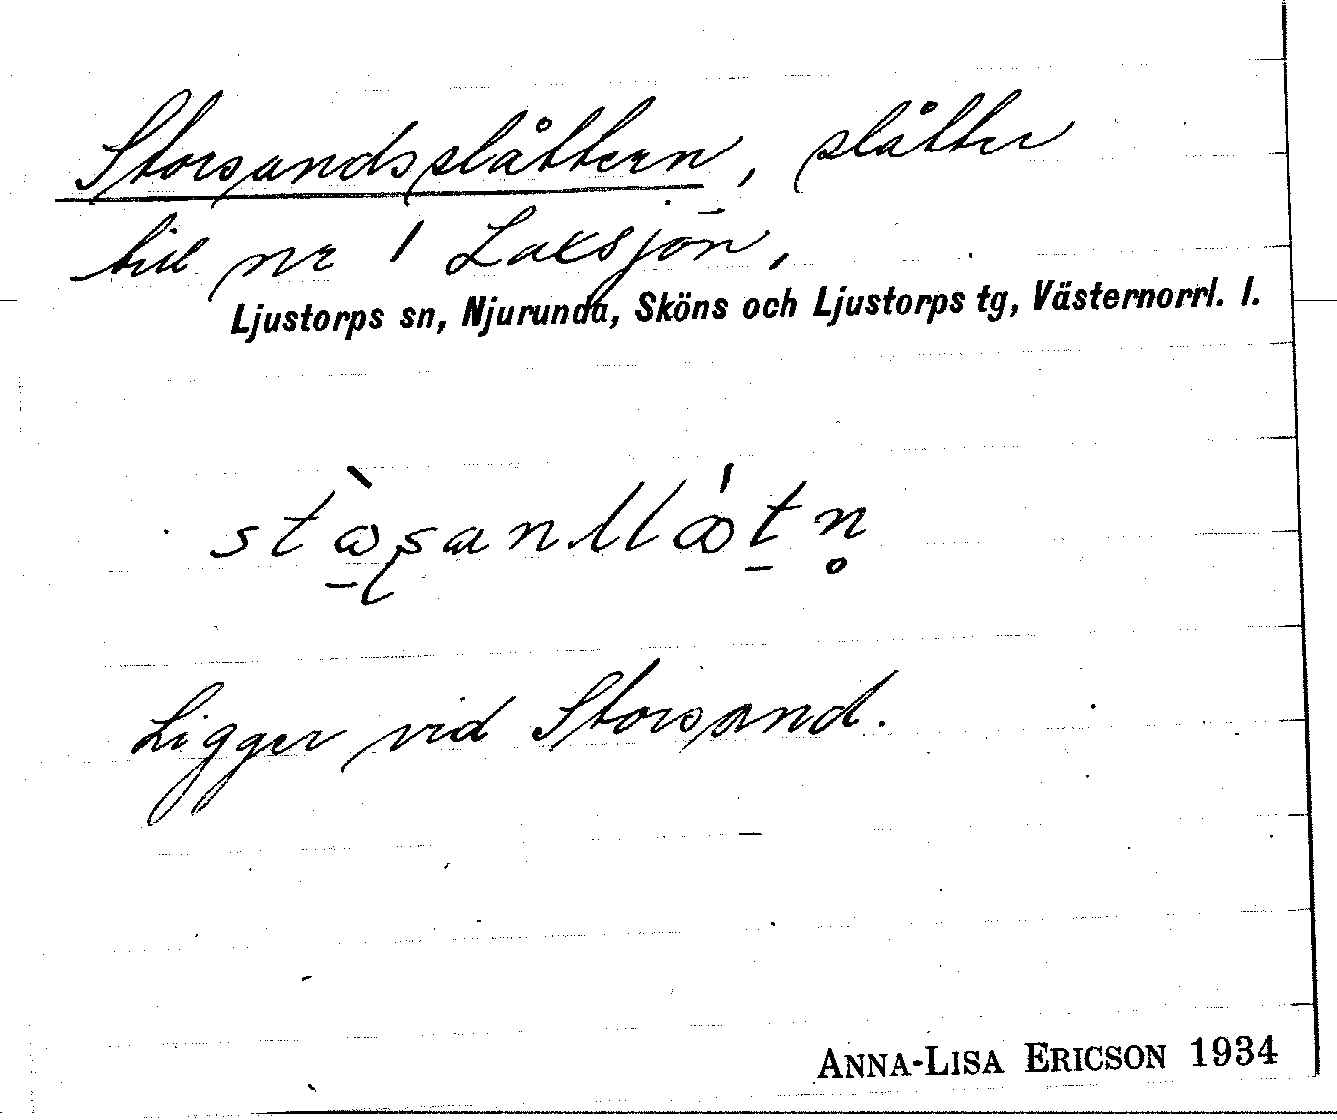 Storsandsslåttern, slåtter
till nr 1 Laxsjön,
Ljustorps sn, Njurunda, Sköns och Ljustorps tg, Västernorrl. l.
Ligger vid Storsand.
ANNA-LISA ERICSON 1934